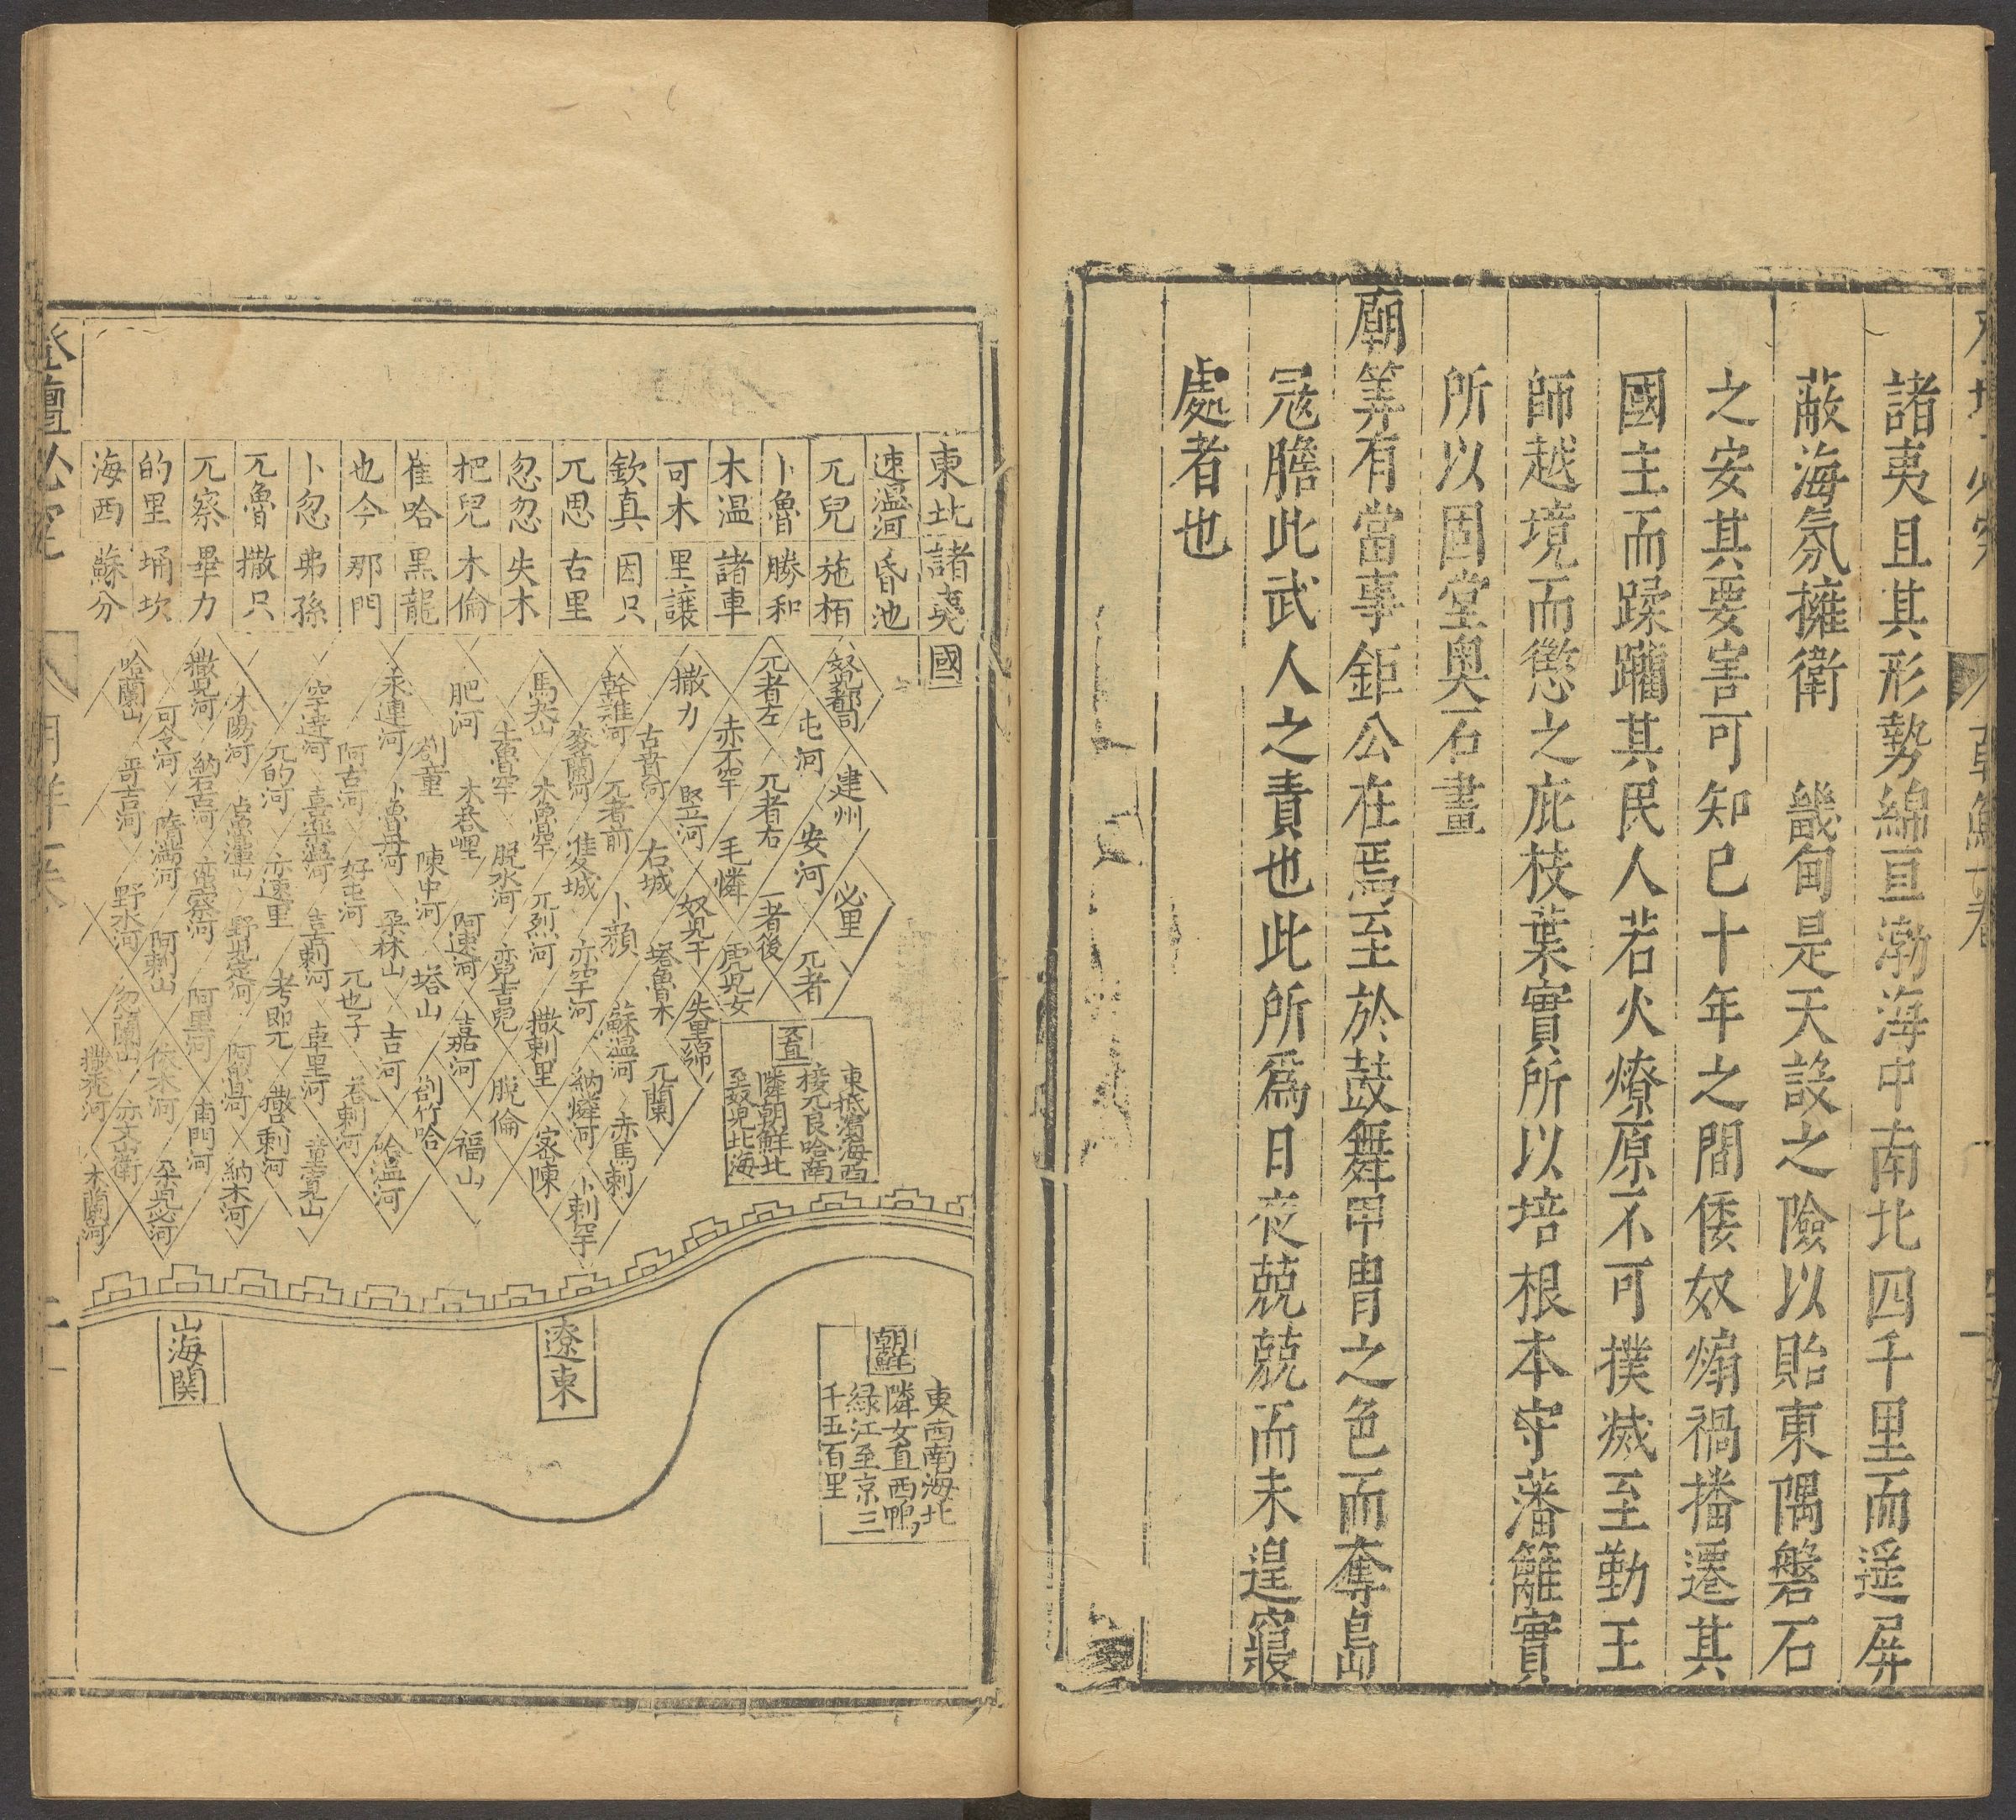 諸夷且其形勢綿亘渤海中南北四千里而遥屏
蔽海氛擁衛　畿甸是天設之險以貽東隅磐石
之安其要害可知已十年之間倭奴煽禍播遷其
國主而蹂躪其民人若火燎原不可撲滅至勤王
師越境而懲之庇枝葉實所以培根本守藩籬實
所以固堂奥石畫
廟筭有當事鉅公在焉至於鼓舞甲胄之色而奪島
冦膽此武人之責也此所爲日夜兢兢而未遑寢
處者也
東北諸夷國
速溫河　昏池
兀兒　施栢
卜魯　勝和
木温　諸車
可木　里讓
欽真　因只
兀思　古里
忽忽　失木
把兒　木倫
崔哈　黑龍
也今　那門
卜忽　弗孫
兀魯　撒只
兀察　畢力
的里　埇坎
海西　蘇分
奴兒都司
建州
必里
屯河
安河
兀者
兀者左
兀者右
赤不罕
毛憐
虎兒文
撒力
竪河
奴兒干
失里綿
古賁河
右城
塔魯木
兀蘭
幹難河
兀者前
卜顔
蘇温河
赤馬剌
麥蘭河
隹城
亦罕河
納憐河
卜剌罕
木魯罕
兀烈河
撒剌里
密陳
土魯罕
脱水河
亦兒吉兒
脱倫
肥河
阿速河
嘉河
福山
劄童
陳中河
塔山
劄竹哈
禾連河
卜魯丹河
朶林山
吉河
哈温河
阿古河
好屯河
兀也子
空達河
喜樂温河
吉剌河
車里河
童寛山
兀的河
亦速里
考郎兀
木陽河
野兒定河
阿温河
納木河
撒兒河
納石河
亦察河
阿里河
南門河
可令河
隋滿河
阿剌山
依木河
朶兒必河
哈蘭山
哥吉河
野水河
忽蘭山
亦文衛
撒禿河
木蘭河
東抵濱海西
接兀良哈南
隣朝鮮北
至奴兒北海
山海関
遼東
朝鮮
東西南海北
隣女直西鴨
緑江至京三
千五百里
登壇必究